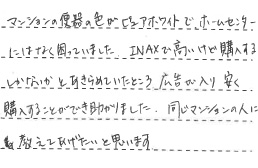 マンションの便器の色がピュアホワイトでホームセンター
にはなく困っていました。INAXで高いけど購入する
しかないかとあきらめていたところ広告が入り安く
購入することができ助かりました。同じマンションの人に
教えてあげたいと思います